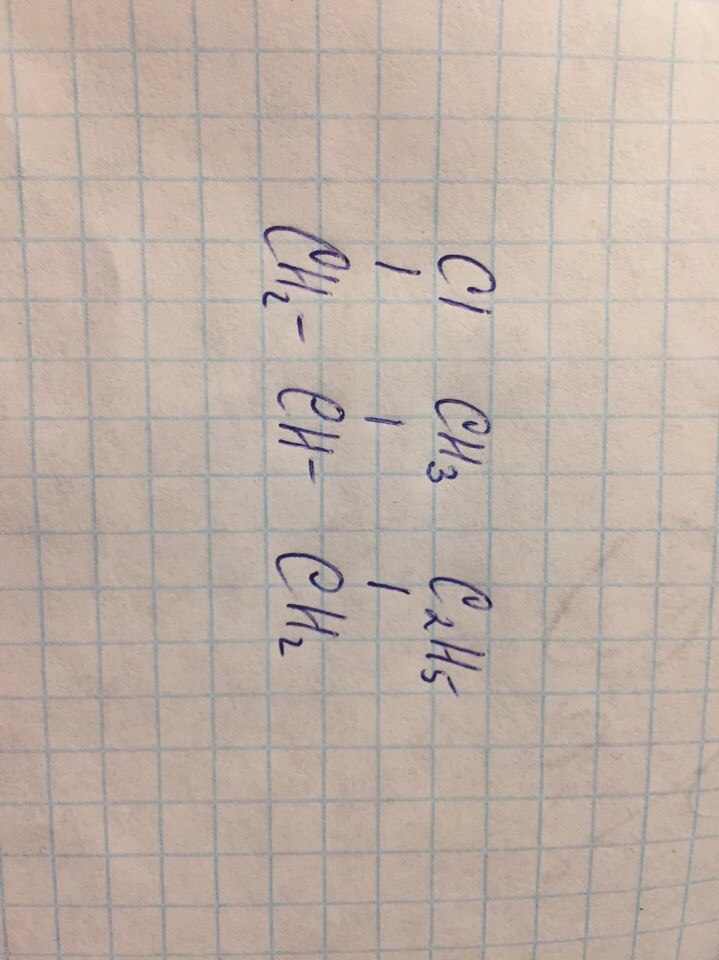 Cl CH₃ C₂H₅
| | |
CH₂ - CH - CH₂